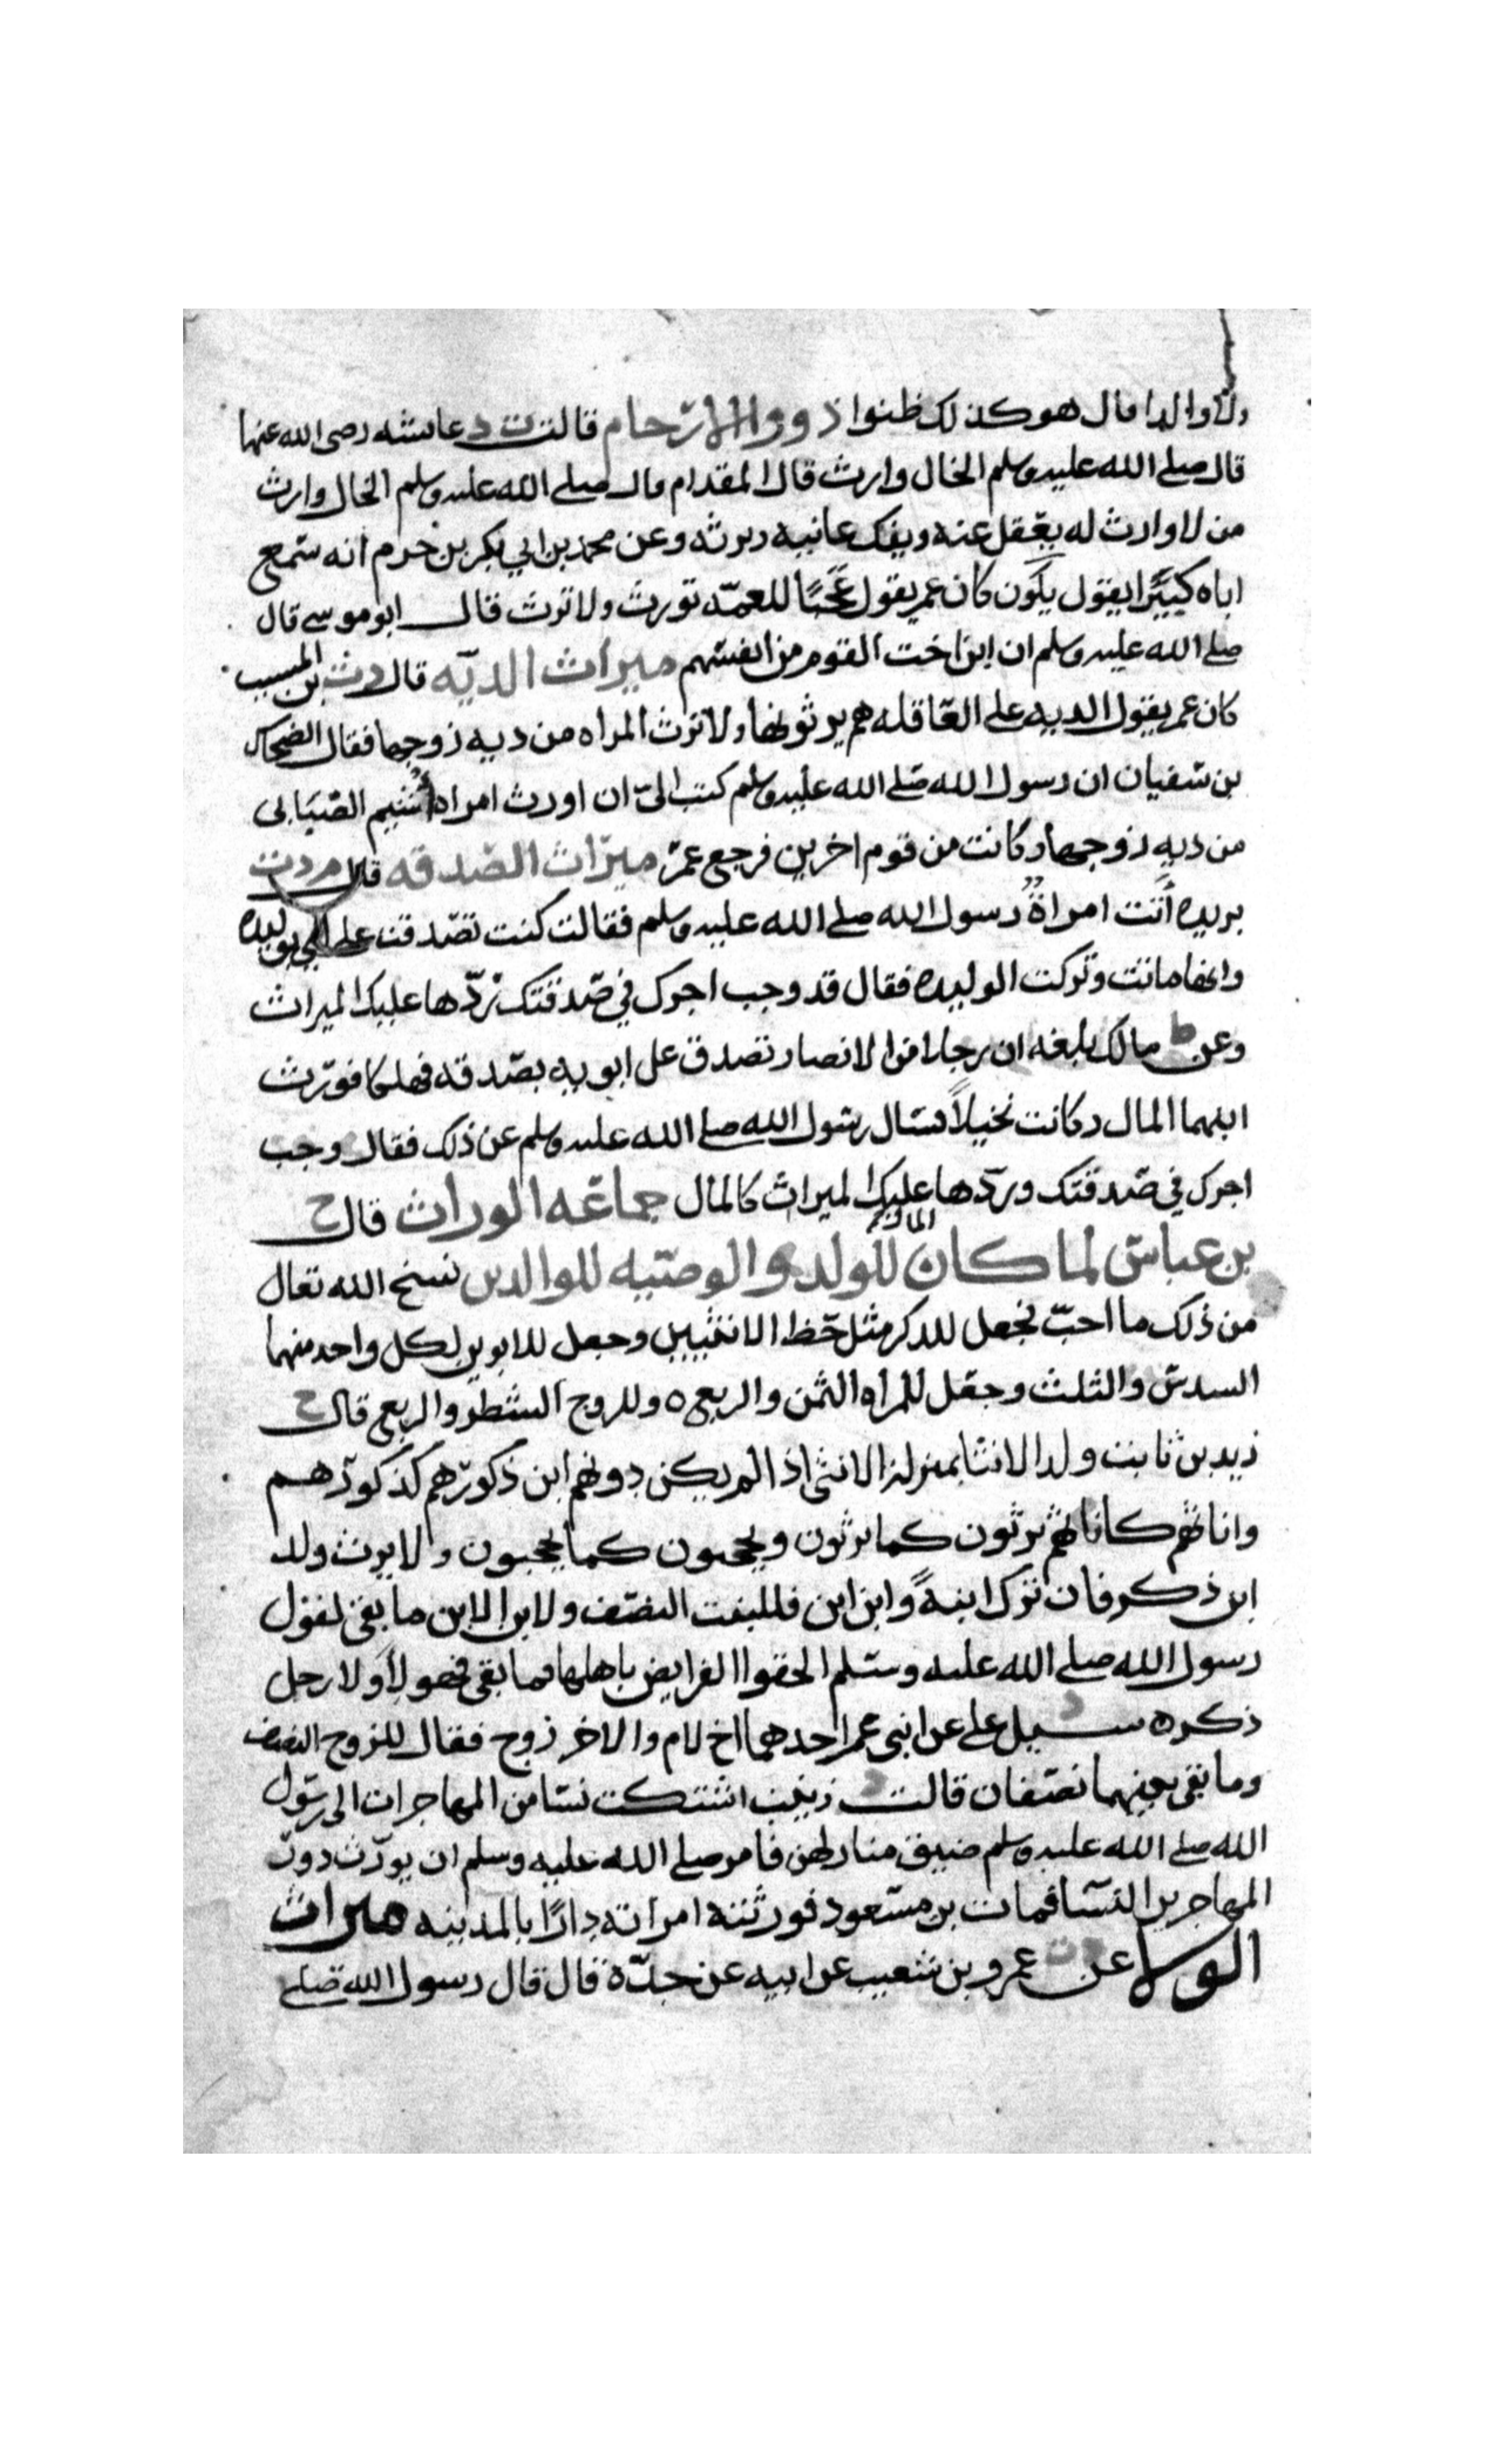 ولا والدا قال هو كذلك ظنوا ذووا الارحام قالت ت د عائشه رضى الله عنها
قال صلى الله عليه وسلم الخال وارث قال المقدام قال صلى الله عليه وسلم الخال وارث
من لا وارث له يعقل عنه ويفك عانيه ويرثه وعن محمد بن ابي بكر بن حزم انه سمع
اباه كثيرا يقول كان عمر يقول عجبا للعمه تورث ولا ترث قال ابو موسى قال
صلى الله عليه وسلم ان ابن اخت القوم من انفسهم ميراث الديه قال د ت بن المسيب
كان عمر يقول الديه على العاقله هم يرثونها ولا ترث المراه من ديه زوجها فقال الضحاك
بن سفيان ان رسول الله صلى الله عليه وسلم كتب الىّ ان اورث امراه اشيم الضبابى
من ديه زوجها وكانت من قوم اخرين فرجع عمر ميراث الصدقه قال م د ت
بريده أتت امراة رسول الله صلى الله عليه وسلم فقالت كنت تصدقت على امى بوليده
وانها ماتت وتركت الوليده فقال قد وجب اجرك في صدقتك تردّها عليك الميراث
وعن ط مالك بلغه ان رجلا من الانصار تصدق على ابويه بصدقه فهلكا فورث
ابنهما المال وكانت نخيلاً فسال رسول الله صلى الله عليه وسلم عن ذلك فقال وجب
اجرك في صدقتك وردّها عليك الميراث كالمال جماعه الوراث قال خ
بن عباس لما كان المال للولد والوصيه للوالدين نسخ الله تعال
من ذلك ما احبّ فجعل للذكر مثل حظ الانثيين وجعل للابوين لكل واحد منهما
السدس والثلث وجعل للمراه الثمن والربع ٥ وللزوج الشطر والربع قال خ
زيد بن ثابت ولد الابنا بمنزلة الابن اذا لم يكن دونهم ابن ذكورهم كذكورهم
واناثهم كاناثهم يرثون كما يرثون ويحجبون كما يحجبون ولا يرث ولد
ابن ذكر فان ترك ابنةً وابن ابن فللبنت النصف ولابن الابن ما بقى لقول
رسول الله صلى الله عليه وسلم الحقوا الفرايض باهلها فما بقى فهو لأولا رجل
ذكر ٥ سيل على عن ابنى عم احدهما اخ لام والاخر زوج فقال للزوج النصف
وما بقى بينهما نصفان قالت د زينب اشتكت نسا من المهاجرات الى رسول
الله صلى الله عليه وسلم ضيق منازلهن فامر صلى الله عليه وسلم ان يورّث دور
المهاجرين النسا فمات بن مسعود فورثته امراته دارًا بالمدينه ميراث
الولا عن د ت عمرو بن شعيب عن ابيه عن جدّه قال قال رسول الله صلى